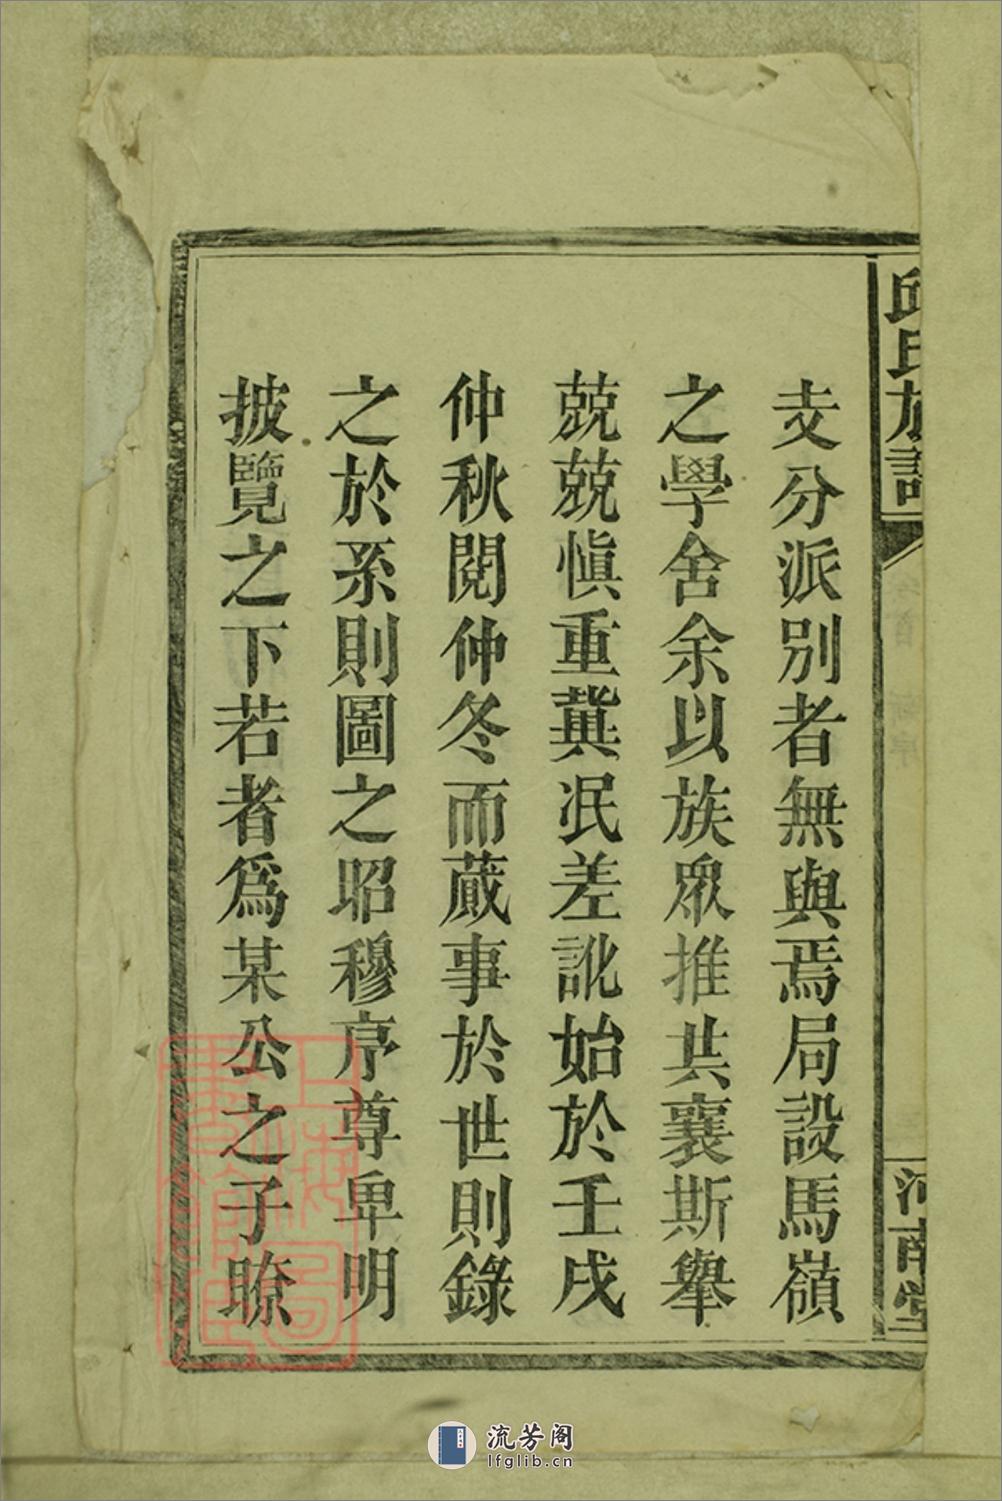 邱氏族譜
河南堂
支分派別者無與焉局設馬嶺
之學舍余以族眾推共襄斯舉
兢兢慎重冀泯差訛始於壬戌
仲秋閱仲冬而蕆事於世則錄
之於系則圖之昭穆序尊卑明
披覽之下若者爲某公之子瞭
上海圖書館藏
流芳阁
lfglib.cn